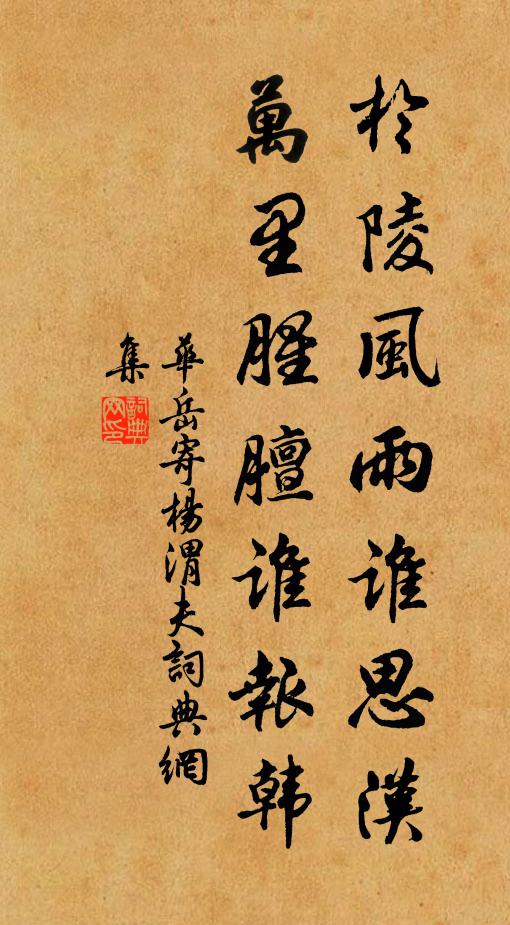 於陵風雨誰思漢
萬里腥膻誰報韓
華岳寄楊渭夫詞典網
集
詞典網印